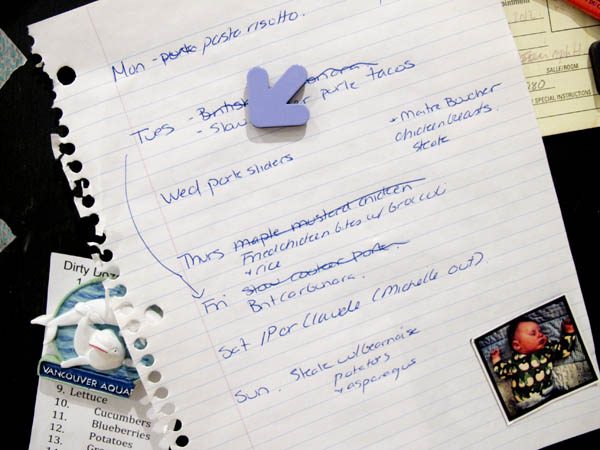 Mon - pork pasta risotto.
Tues -
- Slow pork tacos
Wed pork sliders
+ Maitre Boucher
chicken breasts
steak
Thurs maple mustard chicken
Fried chicken bites w/ broccoli
+ rice
Fri slow cooker pork
Brit carbonara.
Sat / Claude (Michelle out).
Sun. Steak w/ bearnaise
potatoes
+ asparagus
Dirty
VANCOUVER
9. Lettuce
10. Cucumbers
11. Blueberries
12. Potatoes
13.
SALLE/ROOM
SPECIAL INSTRUCTIONS